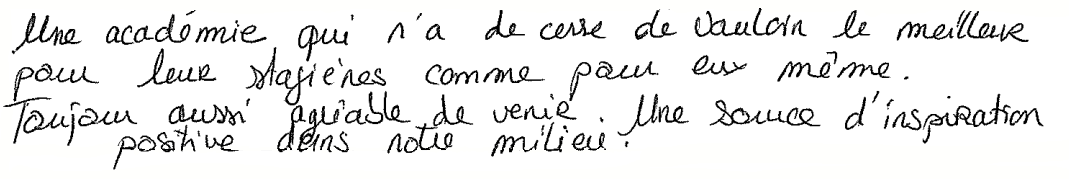 Une académie qui n'a de cesse de vouloir le meilleur
pour leur stagières comme pour eux même.
Toujour aussi agréable de venir. Une source d'inspiration
positive dans notre milieu.